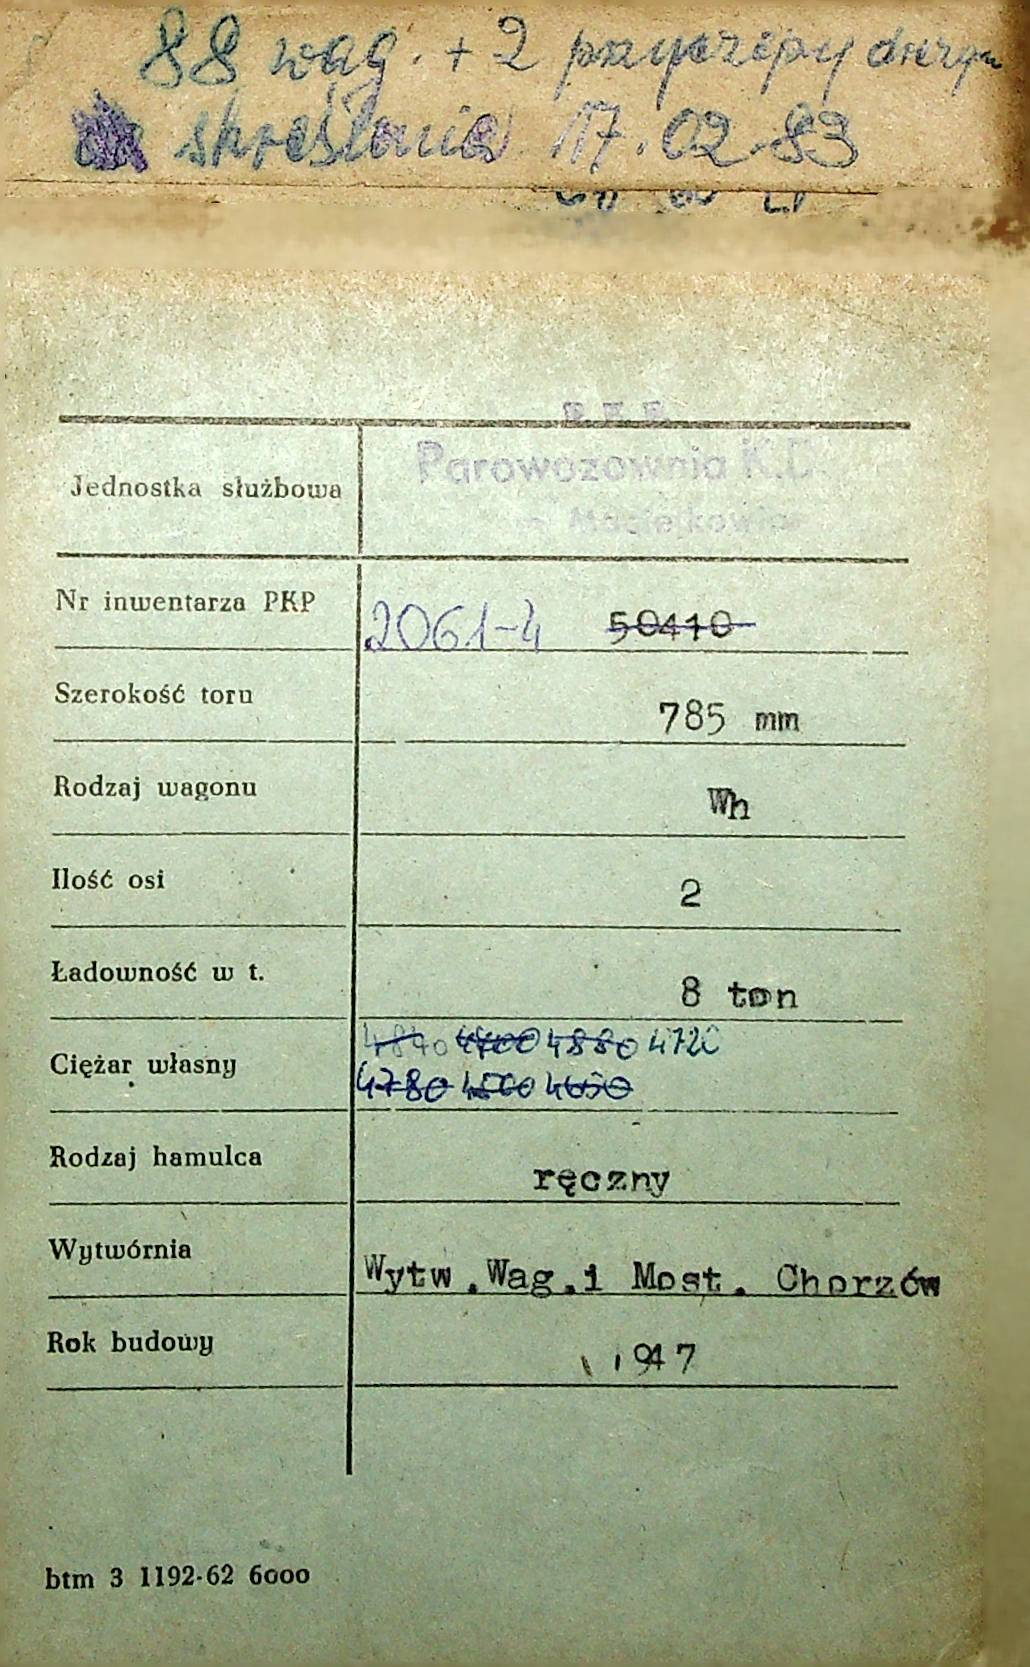 88 wag. + 2 przyczepy drezyn
skreślenia 17.02.83
P.K.P.
Parowozownia K.D.
Jednostka służbowa
w Maciejkowie
Nr inwentarza PKP 2061-4 50410
Szerokość toru 785 mm
Rodzaj wagonu Wh
Ilość osi 2
Ładowność w t. 8 ton
4840 4700 4880 4720
Ciężar własny
4780 4500 4650
Rodzaj hamulca ręczny
Wytwórnia Wytw.Wag.i Most. Chorzów
Rok budowy 1947
btm 3 1192-62 6000